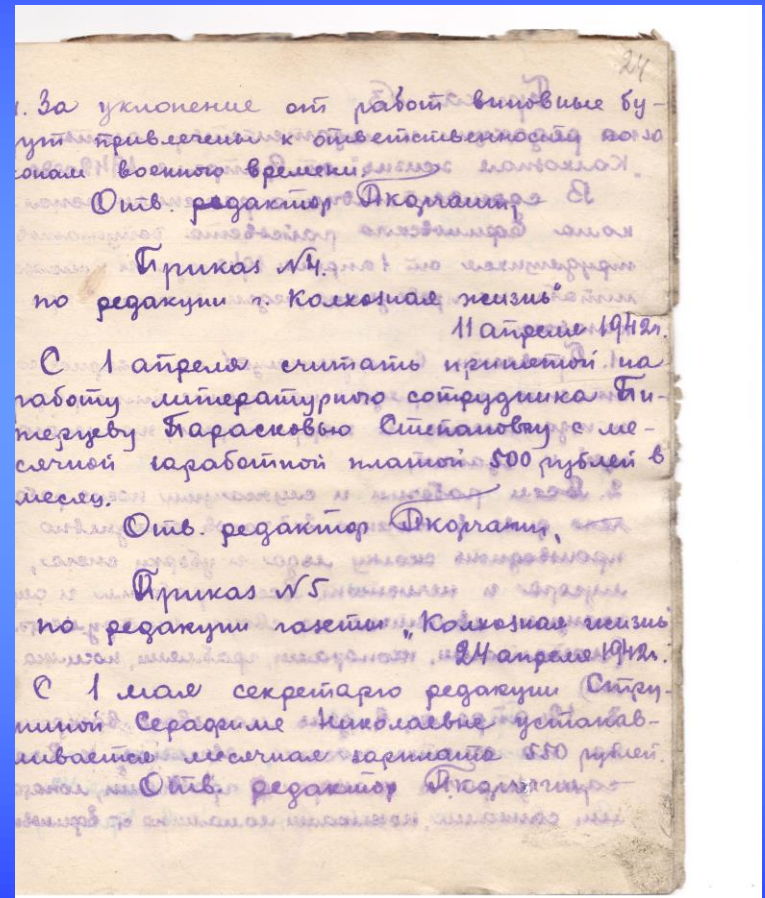 24
. За уклонение от работ виновные бу-
ут привлечены к ответственности по за
онам военного времени.
Отв. редактор
Приказ №4.
по редакции г. Колхозная жизнь"
11 апреля 1942г.
С 1 апреля считать принятой на
работу литературного сотрудника Пи-
терцеву Парасковью Степановну с ме-
сячной заработной платой 500 рублей в
месяц.
Отв. редактор
Приказ №5
по редакции газеты „Колхозная жизнь
24 апреля 1942г.
С 1 мая секретарю редакции Стру-
ниной Серафиме Николаевне устанав-
ливается месячная зарплата 550 рублей.
Отв. редактор